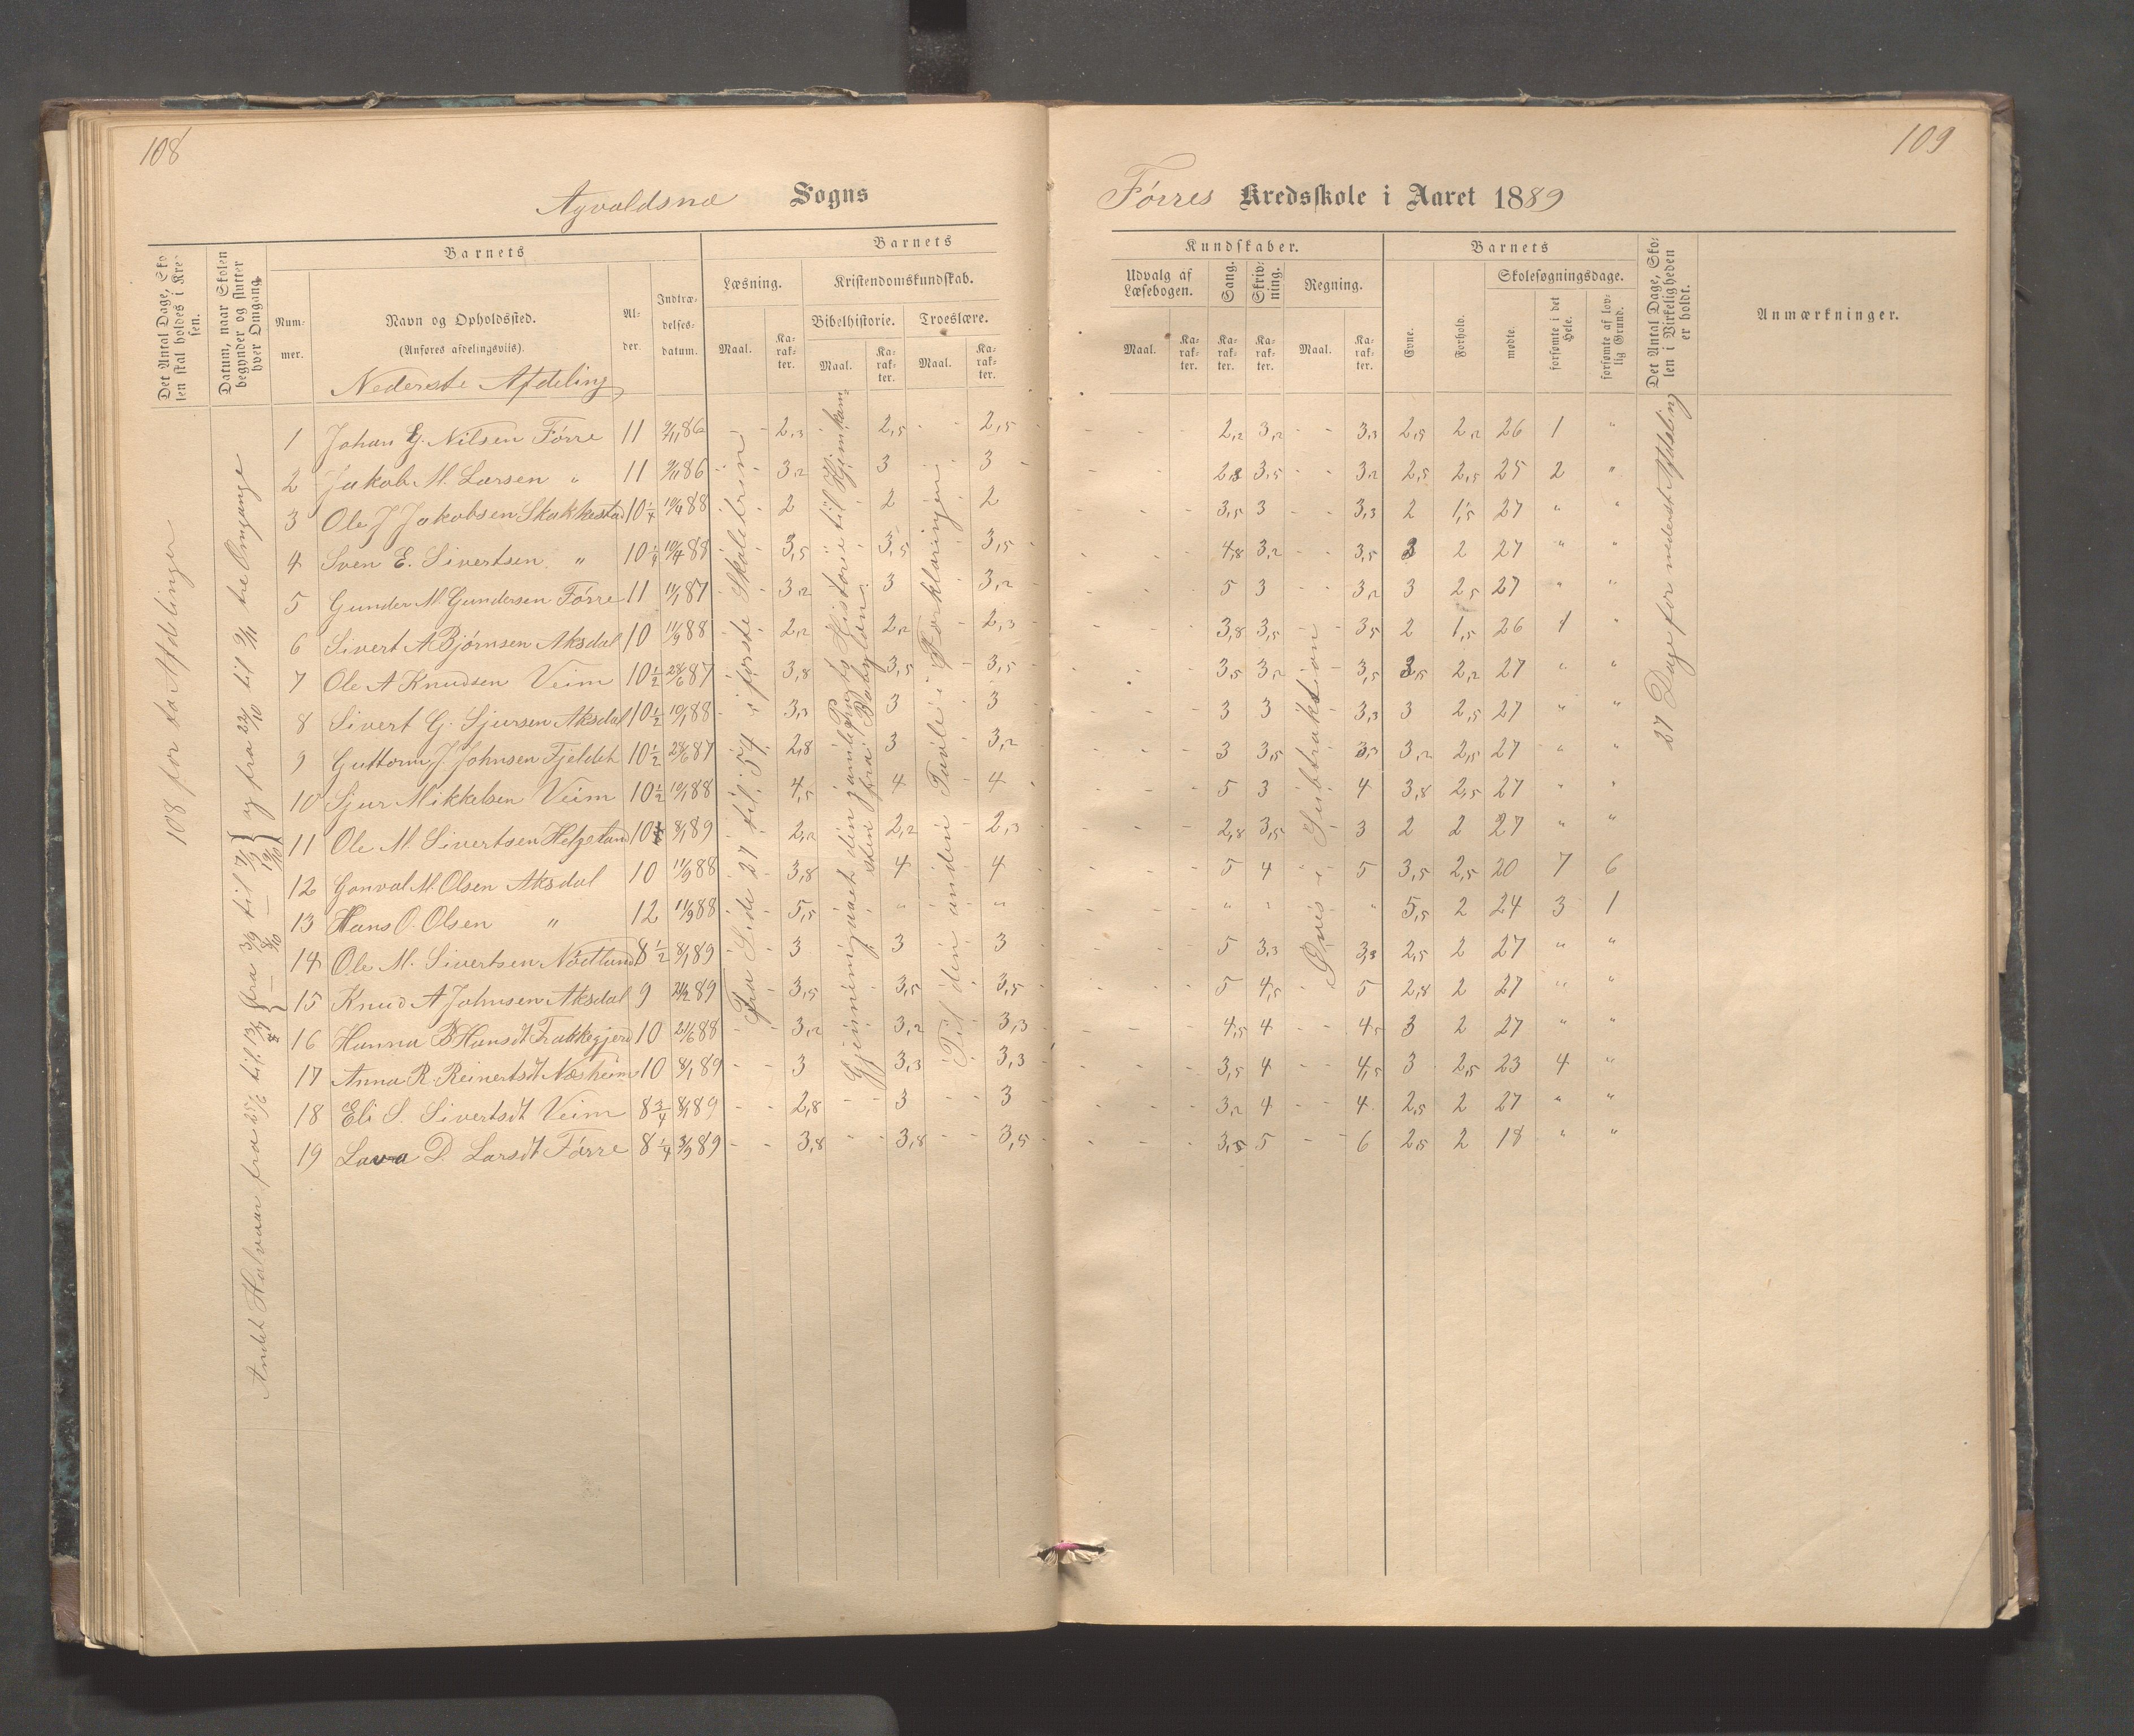 108
109
Agvaldsnæ Sogns
Førres Kredsskole i Aaret 1889
Det Antal Dage, Skolen skal holdes i Kredsen.
Datum, naar Skolen begynder og slutter hver Omgang.
Barnets
Nummer.
Navn og Opholdssted.
(Anføres afdelingsvis).
Alder.
Indtrædelsesdatum.
Barnets
Læsning.
Maal.
Karakter.
Kristendomskundskab.
Bibelhistorie.
Maal.
Karakter.
Troeslære.
Maal.
Karakter.
Kundskaber.
Udvalg af Læsebogen.
Maal.
Karakter.
Sang.
Karakter.
Skrivning.
Karakter.
Regning.
Maal.
Karakter.
Barnets
Evne.
Forhold.
Skolesøgningsdage.
mødte.
forsømte i det Hele.
forsømte af lovlig Grund.
Det Antal Dage, Skolen i Virkeligheden er holdt.
Anmærkninger.
Nederste Afdeling
1 Johan G. Nilsen Førre 11 9/11 86 - - 2,3 2,5 - - 2,5 - - - 2,2 3,2 - - 3,3 2,5 2,2 26 1 "
2 Jakob M. Larsen " 11 9/11 86 - - 3,2 3 - - 3 - - - 2,8 3,5 - - 3,2 2,5 2,5 25 2 "
3 Ole J Jakobsen Skakkestad 10 1/4 10/4 88 2 2 2 - - - 3,5 3 - - 3,3 2 1,5 27 " "
4 Sven E. Sivertsen " 10 1/4 10/4 88 3,5 3,5 3,5 - - - 4,8 3,2 - - 3,5 3 2 27 " "
5 Gunder M. Gundersen Førre 11 11/1 87 3,2 3 3,2 - - - 5 3 - - 3,2 3 2,5 27 " "
6 Sivert A Bjørnsen Aksdal 10 11/9 88 2,2 2,2 2,3 - - - 3,8 3,5 - 3,5 2 1,5 26 1 "
7 Ole A Knudsen Veim 10 1/2 28/6 87 3,8 3,5 3,5 - - - 3,5 3,2 - 3,5 3,5 2,2 27 " "
8 Sivert G. Sjursen Aksdal 10 1/2 10/1 88 3,3 3 3 - - - 3 3 3,3 3 2,5 27 " "
9 Guttorm J Johnsen Fjeldet 10 1/2 28/6 87 2,8 3 3,2 - - - 3 3,5 3,3 3,2 2,5 27 " "
10 Sjur Mikkelsen Veim 10 1/2 10/1 88 4,5 4 4 - - - 5 3 4 3,8 2,5 27 " "
11 Ole M. Sivertsen Helgeland 10 8/1 89 2,2 2,2 2,3 - - - 2,8 3,5 3 2 2 27 " "
12 Gonval M. Olsen Aksdal 10 11/9 88 3,8 4 4 - - - 5 4 5 3,5 2,5 20 7 6
13 Hans O. Olsen " 12 11/9 88 5,5 " " - - - " " " 5,5 2 24 3 1
14 Ole M. Sivertsen Nødland 8 1/2 8/1 89 3 3 3 - - - 5 3,3 3,3 2,5 2 27 " "
15 Knud A Johnsen Aksdal 9 21/2 89 3,5 3,5 3,5 - - - 5 4,5 5 2,8 2 27 " "
16 Hanna B Hansdt Frakkegjerd 10 21/6 88 3,2 3,2 3,3 - - - 4,5 4 - - 4,5 3 2 27 " "
17 Anna R. Reinertsdt Næsheim 10 8/1 89 - - 3 3,3 3,3 - - - 3,5 4 - - 4,5 3 2,5 23 4 "
18 Eli S. Sivertsdt Veim 8 3/4 8/1 89 - - 2,8 - - 3 - - 3 - - - 3,2 4 - - 4 2,5 2 27 " "
19 Lava D. Larsdt Førre 8 1/4 3/9 89 - - 3,8 " - 3,8 - - 3,5 - - - 3,5 5 - - 6 2,5 2 18 " "
108 for to Afdelinger
Andet Halvaar fra 25/6 til 13/7 fra 3/9 til 7/9 og fra 22/10 til 9/11 tre Omgange
Fra Side 27 til 54 i første Skoletrin
Gjennemgaaet den jamlepagts Historie til Hjemkomsten fra Babylon.
Til den anden Tavle i Forklaringen
Øvis i Subtraktion
27 Dage for nederst Afdeling